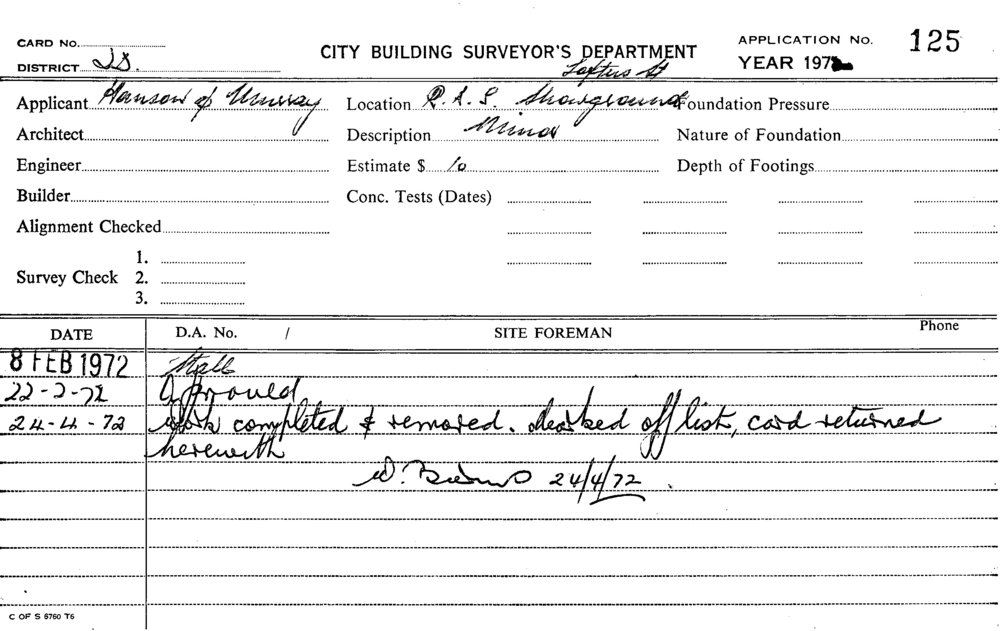 CARD No.
DISTRICT
CITY BUILDING SURVEYOR'S DEPARTMENT
APPLICATION No. 125
YEAR 197
Applicant Hanson & Murray
Location R.A.S. Showground
Foundation Pressure
Architect
Description Minor
Nature of Foundation
Engineer
Estimate $ 10
Depth of Footings
Builder
Conc. Tests (Dates)
Alignment Checked
Survey Check
1.
2.
3.
DATE
D.A. No. /
SITE FOREMAN
Phone
8 FEB 1972 Stall
22-2-72 Approved
24-4-72 Work completed & removed. Marked off list, card returned
herewith
W. 24/4/72
C OF S 6760 T6